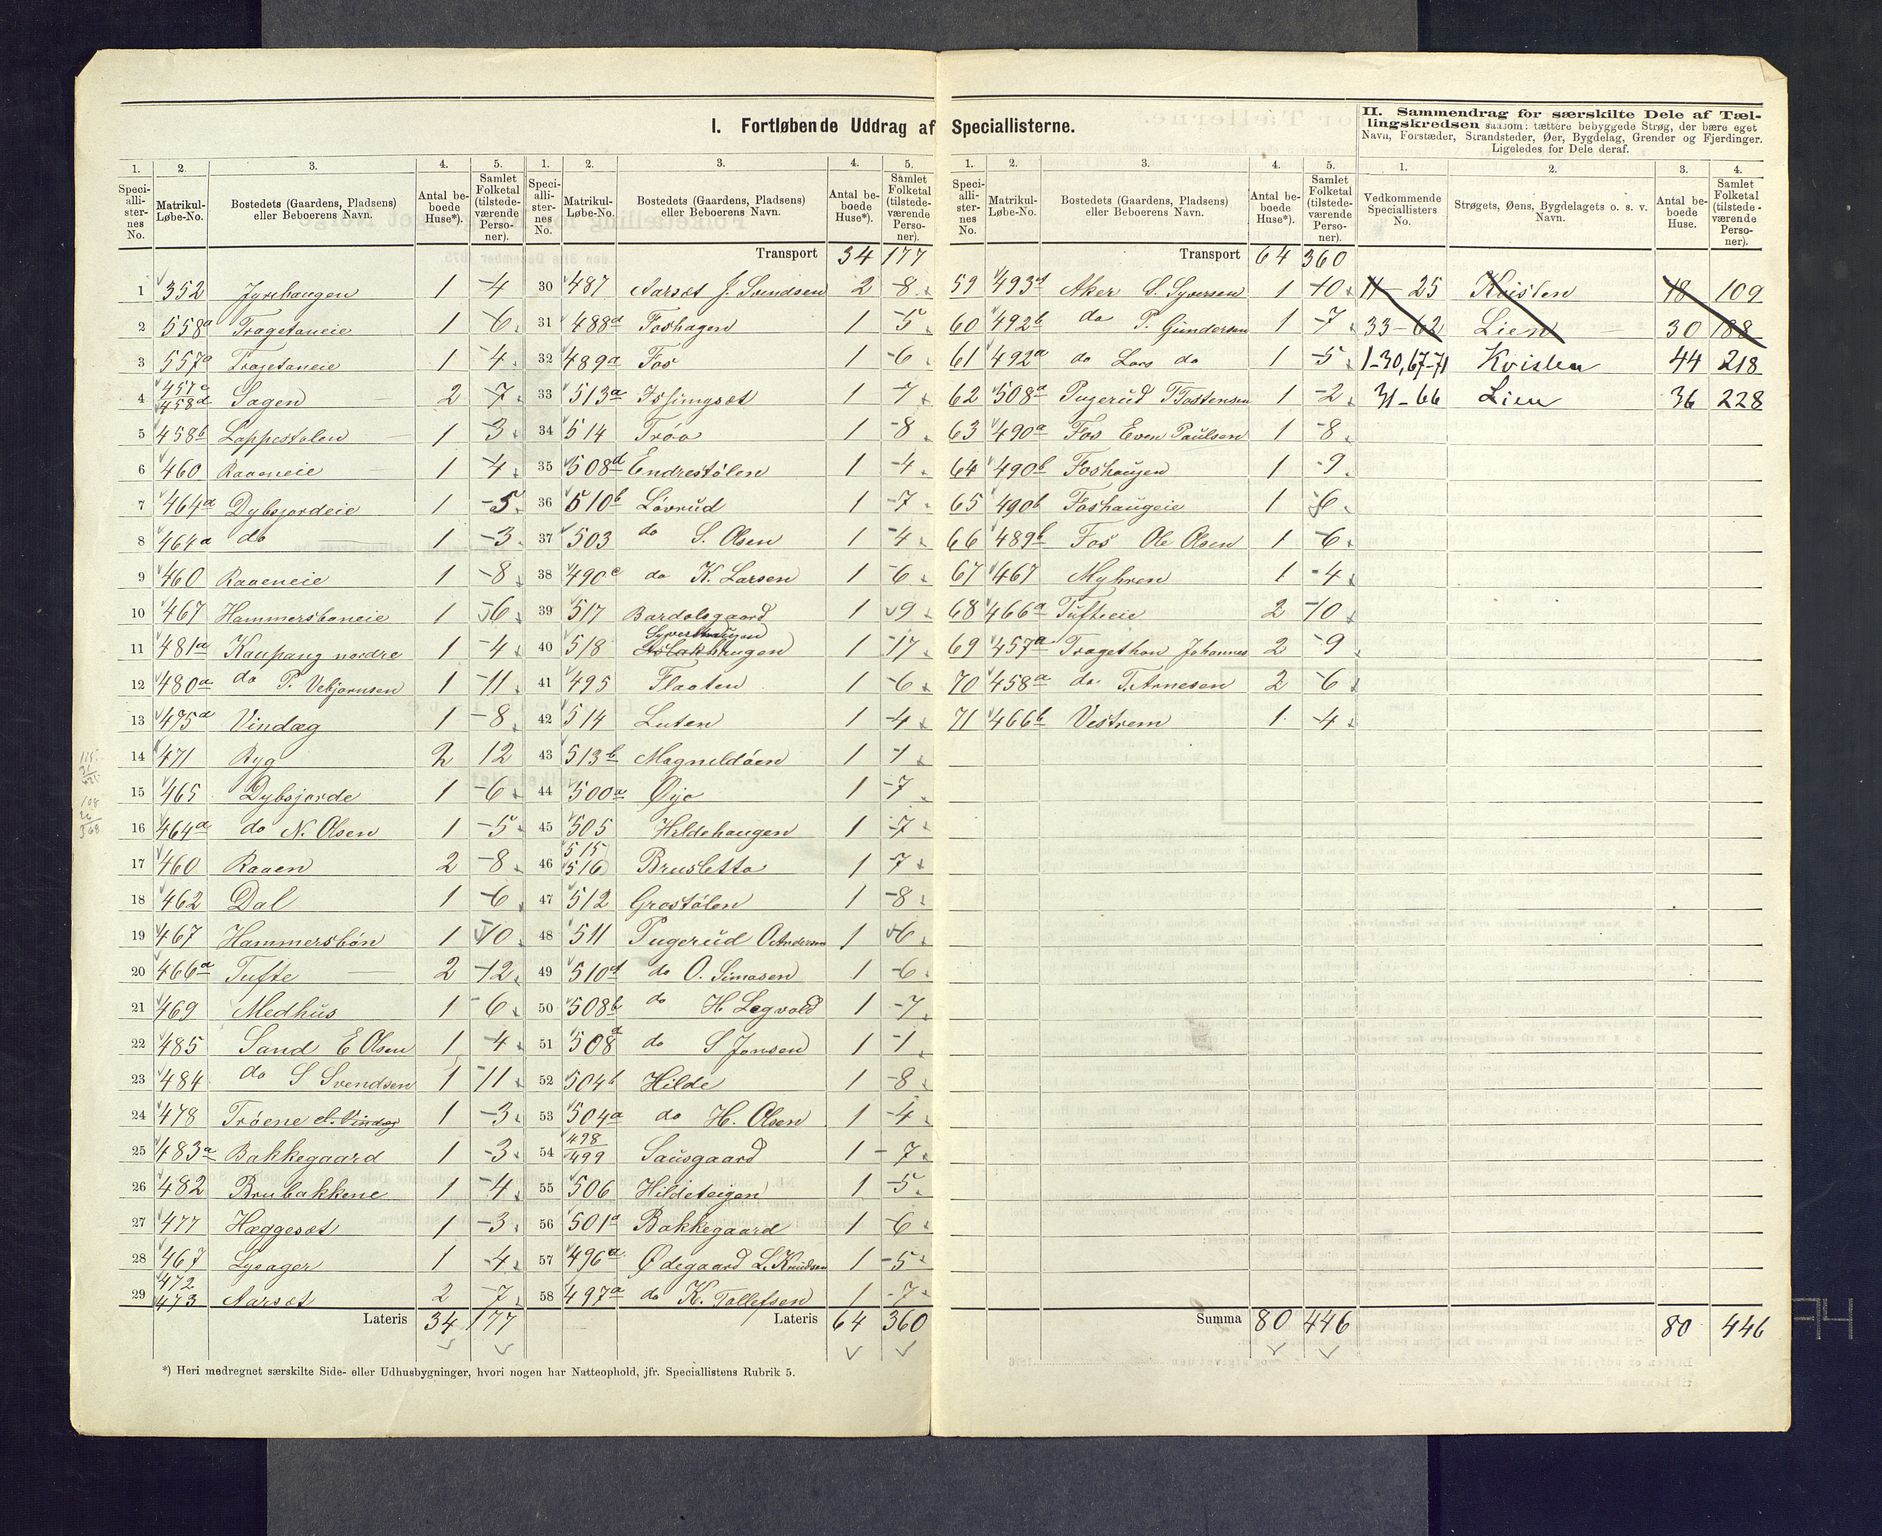 I. Fortløbende Uddrag af Speciallisterne.
II. Sammendrag for særskilte Dele af Tællingskredsen saasom: tættere bebyggede Strøg, der bære eget Navn, Forstæder, Strandsteder, Øer, Bygdelag, Grender og Fjerdinger. Ligeledes for Dele deraf.
1. 2. 3. 4. 5.
Speciallisternes No. Matrikul-Løbe-No. Bostedets (Gaardens, Pladsens) eller Beboerens Navn. Antal beboede Huse*). Samlet Folketal (tilstedeværende Personer).
1 352 Jyrehaugen 1 4
2 558a Tragetoneie 1 6
3 557a Tragetoneie 1 4
4 457c 458d Sagen 2 7
5 458b Loppestølen 1 3
6 460 Raaeneie 1 4
7 464a Dybsjordeie 1 5
8 464a do 1 3
9 460 Raaeneie 1 8
10 467 Hammersbøneie 1 6
11 481a Kaupang nordre 1 4
12 480a do P. Vebjørnsen 1 11
13 475a Vindæg 1 8
14 471 Byg 2 12
15 465 Dybsjorde 1 6
16 464a do N. Olsen 1 5
17 460 Raaen 2 8
18 462 Dal 1 6
19 467 Hammersbøn 1 10
20 466a Tufte 2 12
21 469 Medhus 1 6
22 485 Sand E Olsen 1 4
23 484 do S Svendsen 1 11
24 478 Trøene el. Vindæg 1 3
25 483a Bakkegaard 1 3
26 482 Brubakkene 1 4
27 477 Hæggesæt 1 3
28 467 Lyeager 1 4
29 472 473 Aarset 2 7
Lateris 34 177
1. 2. 3. 4. 5.
Speciallisternes No. Matrikul-Løbe-No. Bostedets (Gaardens, Pladsens) eller Beboerens Navn. Antal beboede Huse*). Samlet Folketal (tilstedeværende Personer).
Transport 34 177
30 487 Aarset J. Svendsen 2 8
31 488a Foshagen 1 5
32 489a Fos 1 6
33 513a 1 7
34 514 Trøo 1 8
35 508d Endrestølen 1 4
36 510b Løvrud 1 7
37 503 do S. Olsen 1 4
38 490c do K. Larsen 1 6
39 517 Bardolsgaard 1 9
40 518 Syverthaugen 1 17
41 495 Flaaten 1 6
42 514 Luten 1 4
43 513b Magnildøen 1 1
44 500a Øijo 1 7
45 505 Hildehaugen 1 7
46 515 516 Brusletto 1 7
47 512 Grostølen 1 8
48 511 Pugerud O Andersen 1 6
49 510d do O. Simosen 1 6
50 508b do H Legvold 1 7
51 508d do S Jonsen 1 1
52 504b Hilde 1 8
53 504a do H. Olsen 1 4
54 498 499 Sausgaard 1 7
55 506 Hildeteigen 1 5
56 501a Bakkegaard 1 6
57 496a Ødegaard L. Knudsen 1 5
58 497a do K. Tollefsen 1 7
Lateris 64 360
1. 2. 3. 4. 5.
Speciallisternes No. Matrikul-Løbe-No. Bostedets (Gaardens, Pladsens) eller Beboerens Navn. Antal beboede Huse*). Samlet Folketal (tilstedeværende Personer).
Transport 64 360
59 493d Aker S. Syversen 1 10
60 492b do P. Gundersen 1 7
61 492a do Lars do 1 5
62 508a Pugerud T Tostensen 1 2
63 490a Fos Even Paulsen 1 8
64 490b Foshaugen 1 9
65 490b Foshaugeie 1 6
66 489b Fos Ole Olsen 1 6
67 467 Myhren 1 4
68 466a Tufteie 2 10
69 457a Tragethon Johannes 2 9
70 458a do T. Arnesen 2 6
71 466b Vestrem 1 4
Summa 80 446
1. 2. 3. 4.
Vedkommende Speciallisters No. Strøgets, Øens, Bygdelagets o. s. v. Navn. Antal beboede Huse. Samlet Folketal (tilstedeværende Personer).
11-25 Kvislen 18 109
33-62 Lien 30 188
1-30, 67-71 Kvislen 44 218
31-66 Lien 36 228
80 446
*) Heri medregnet særskilte Side- eller Udhusbygninger, hvori nogen har Natteophold, jfr. Speciallistens Rubrik 5.